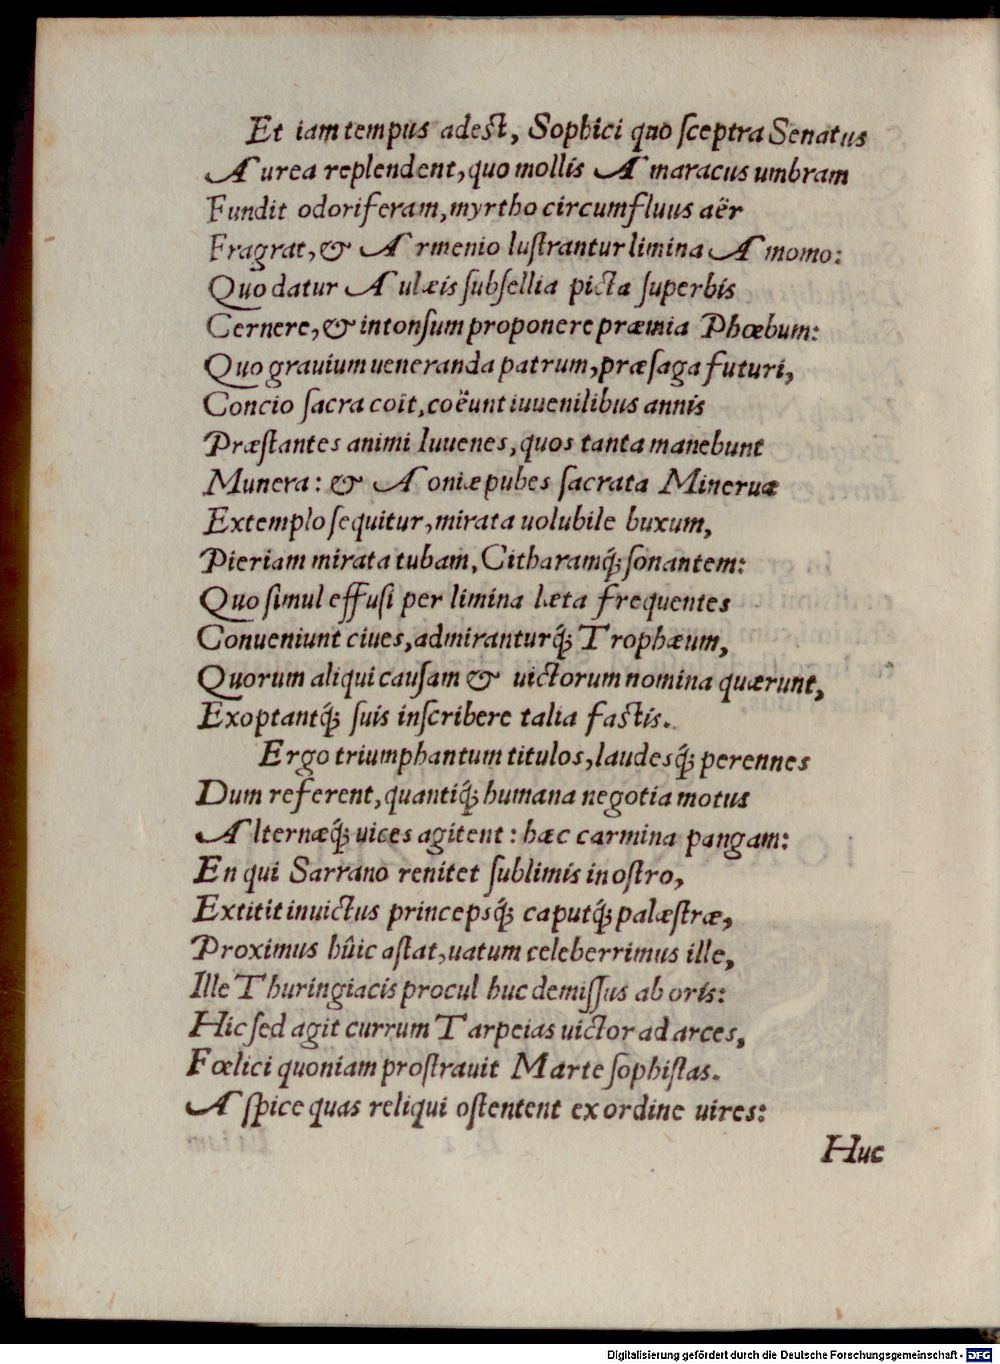 Et iam tempus adest, Sophici quo ſceptra Senatus
Aurea replendent, quo mollis Amaracus umbram
Fundit odoriferam, myrtho circumfluus aër
Fragrat, & Armenio luſtrantur limina Amomo:
Quo datur Aulæis ſubſellia picta ſuperbis
Cernere, & intonſum proponere præmia Phœbum:
Quo grauium ueneranda patrum, præſaga futuri,
Concio ſacra coit, coëunt iuuenilibus annis
Præſtantes animi Iuuenes, quos tanta manebunt
Munera: & Aoniæ pubes ſacrata Mineruæ
Extemplo ſequitur, mirata uolubile buxum,
Pieriam mirata tubam, Citharamq́; ſonantem:
Quo ſimul effuſi per limina læta frequentes
Conueniunt ciues, admiranturq́; Trophæum,
Quorum aliqui cauſam & uictorum nomina quærunt,
Exoptantq́; ſuis inſcribere talia faſtis.
Ergo triumphantum titulos, laudesq́; perennes
Dum referent, quantiq́; humana negotia motus
Alternæq́; uices agitent: hæc carmina pangam:
En qui Sarrano renitet ſublimis in oſtro,
Extitit inuictus princepsq́; caputq́; palæſtræ,
Proximus hûic aſtat, uatum celeberrimus ille,
Ille Thuringiacis procul huc demiſſus ab oris:
Hic ſed agit currum Tarpeias uictor ad arces,
Fœlici quoniam proſtrauit Marte ſophiſtas.
Aſpice quas reliqui oſtentent ex ordine uires:
Huc
Digitalisierung gefördert durch die Deutsche Forschungsgemeinschaft - DFG